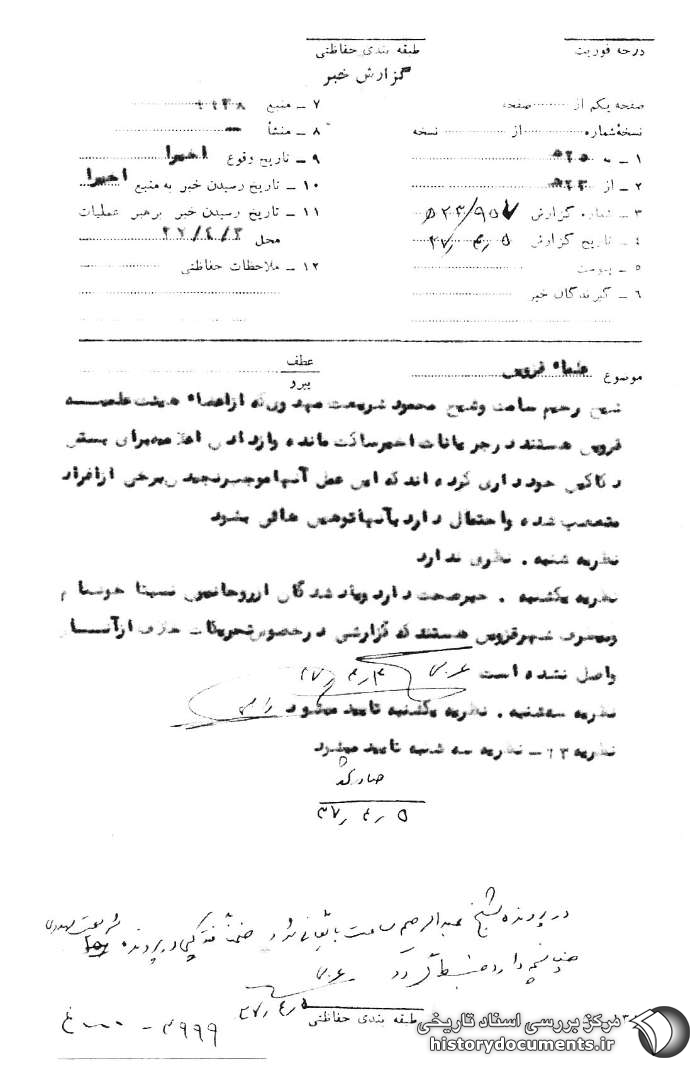 درجه فوریت
طبقه بندی حفاظتی
گزارش خبر
صفحه یکم از صفحه
نسخه‌شماره از نسخه
۱ ـ به ۵۲۵
۲ ـ از ۵۲۳
۳ ـ شماره گزارش ۵۲۳/۹۵۷
۴ ـ تاریخ گزارش ۳۷٫۴٫۵
۵ ـ پیوست
۶ ـ گیرندگان خبر
۷ ـ منبع
۸ ـ منشأ ـ
۹ ـ تاریخ وقوع اخیرا
۱۰ ـ تاریخ رسیدن خبر به منبع اخیرا
۱۱ ـ تاریخ رسیدن خبر برهبر عملیات
محل ۳۷/۴/۳
۱۲ ـ ملاحظات حفاظتی
موضوع علماء قزوین
عطف
پیرو
شیخ رحیم سامت وشیخ محمود شریعت مهدوی که ازاعضاء هیئت علمیه
قزوین هستند درجریانات اخیرساکت مانده وازدادن اعلامیه‌برای بستن
دکاکین خودداری کرده اند که این عمل آنهاموجب‌رنجیدن‌برخی ازافراد
متعصب شده واحتمال دارد بآنهاتوهین هائی بشود
نظریه شنبه . نظری ندارد
نظریه یکشنبه . خبرصحت دارد ویادشدگان ازروحانیون نسبتا خوشنام
ومعروف شهرقزوین هستند که گزارشی درخصوص‌تحریکات خلاف ازآنها
واصل نشده است ۳۷٫۴٫۴
نظریه سه‌شنبه . نظریه یکشنبه تایید میشود
نظریه ۱۳ـ نظریه سه شنبه تایید میشود
صادر شد
۳۷٫۴٫۵
در پرونده شیخ عبدالرحیم سامت بایگانی شود ضمناً فتوکپی در پرونده شریعت مهدوی
چنانچه دارد ضبط گردد
۳۷٫۴٫۵
۳۹۹۹ ـ
طبقه بندی حفاظتی
مرکز بررسی اسناد تاریخی
historydocuments.ir